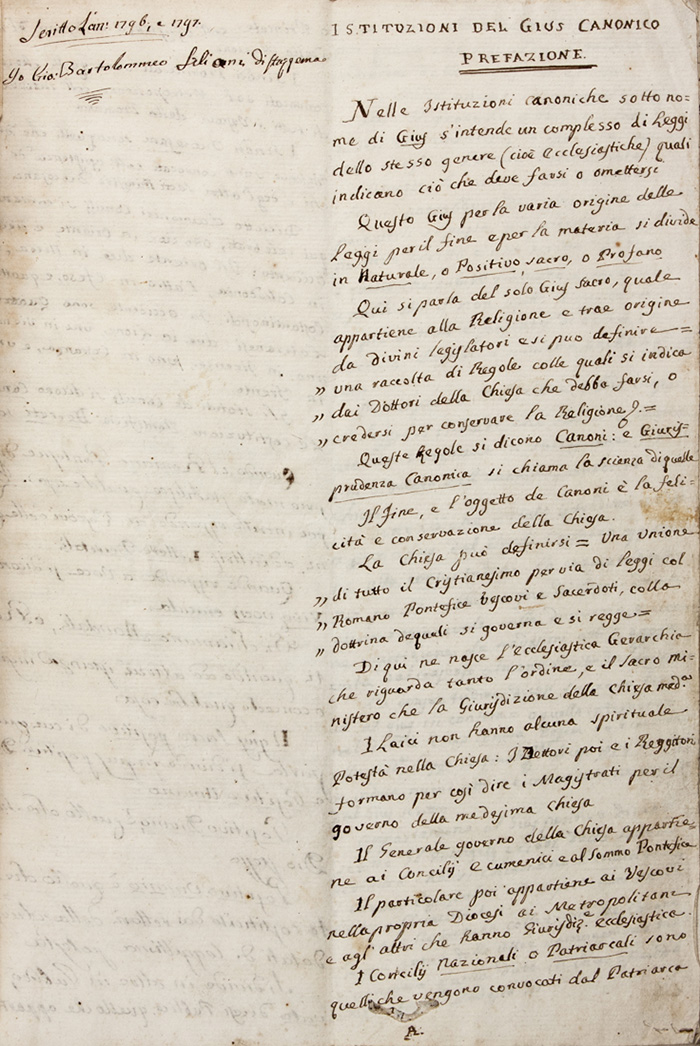 Scritto L'an: 1796, e 1797.
Io Gio: Bartolommeo
ISTITUZIONI DEL GIUS CANONICO
PREFAZIONE.
Nelle Istituzioni canoniche sotto no-
me di Gius s'intende un complesso di Leggi
dello stesso genere (cioè ecclesiastiche) quali
indicano ciò che deve farsi o omettersi
Questo Gius per la varia origine delle
Leggi per il fine e per la materia si divide
in Naturale, o Positivo, sacro, o Profano
Qui si parla del solo Gius sacro, quale
appartiene alla Religione e trae origine
da divini legislatori e si può definire =
„ una raccolta di Regole colle quali si indica
„ dai Dottori della Chiesa che debba farsi, o
„ credersi per conservare la Religione =
Queste Regole si dicono Canoni: e Giuris-
prudenza Canonica si chiama la scienza di quelle
Il Fine, e l'oggetto de Canoni è la feli-
cità e conservazione della Chiesa.
La Chiesa può definirsi = Una unione
„ di tutto il Cristianesimo per via di Leggi col
„ Romano Pontefice Vescovi e Sacerdoti, colla
„ dottrina de quali si governa e si regge =
Di qui ne nasce l'ecclesiastica Gerarchia
che riguarda tanto l'ordine, e il sacro mi-
nistero che la Giurisdizione della Chiesa med.a
I Laici non hanno alcuna spirituale
Potestà nella Chiesa: I Rettori poi e i Reggitori
formano per così dire i Magistrati per il
governo della medesima Chiesa
Il Generale governo della Chiesa appartie-
ne ai Concilij ecumenici e al sommo Pontefice
Il particolare poi appartiene ai Vescovi
nella propria Diocesi ai Metropolitani
e agl'altri che hanno Giurisdiz.e ecclesiastica.
I Concilij Nazionali o Patriarcali sono
quelli che vengono convocati dal Patriarca
A.